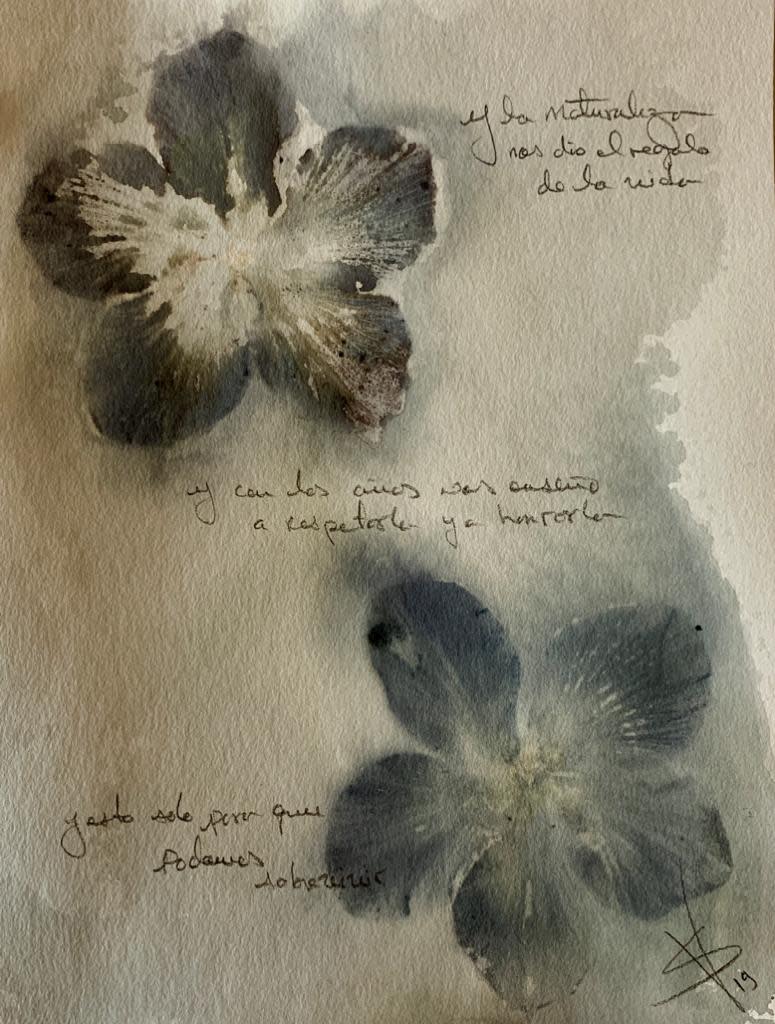 y la naturaleza
nos dio el regalo
de la vida
y con los años nos enseño
a respetarla y a honrarla
y esto solo para que
podamos
sobrevivir
19